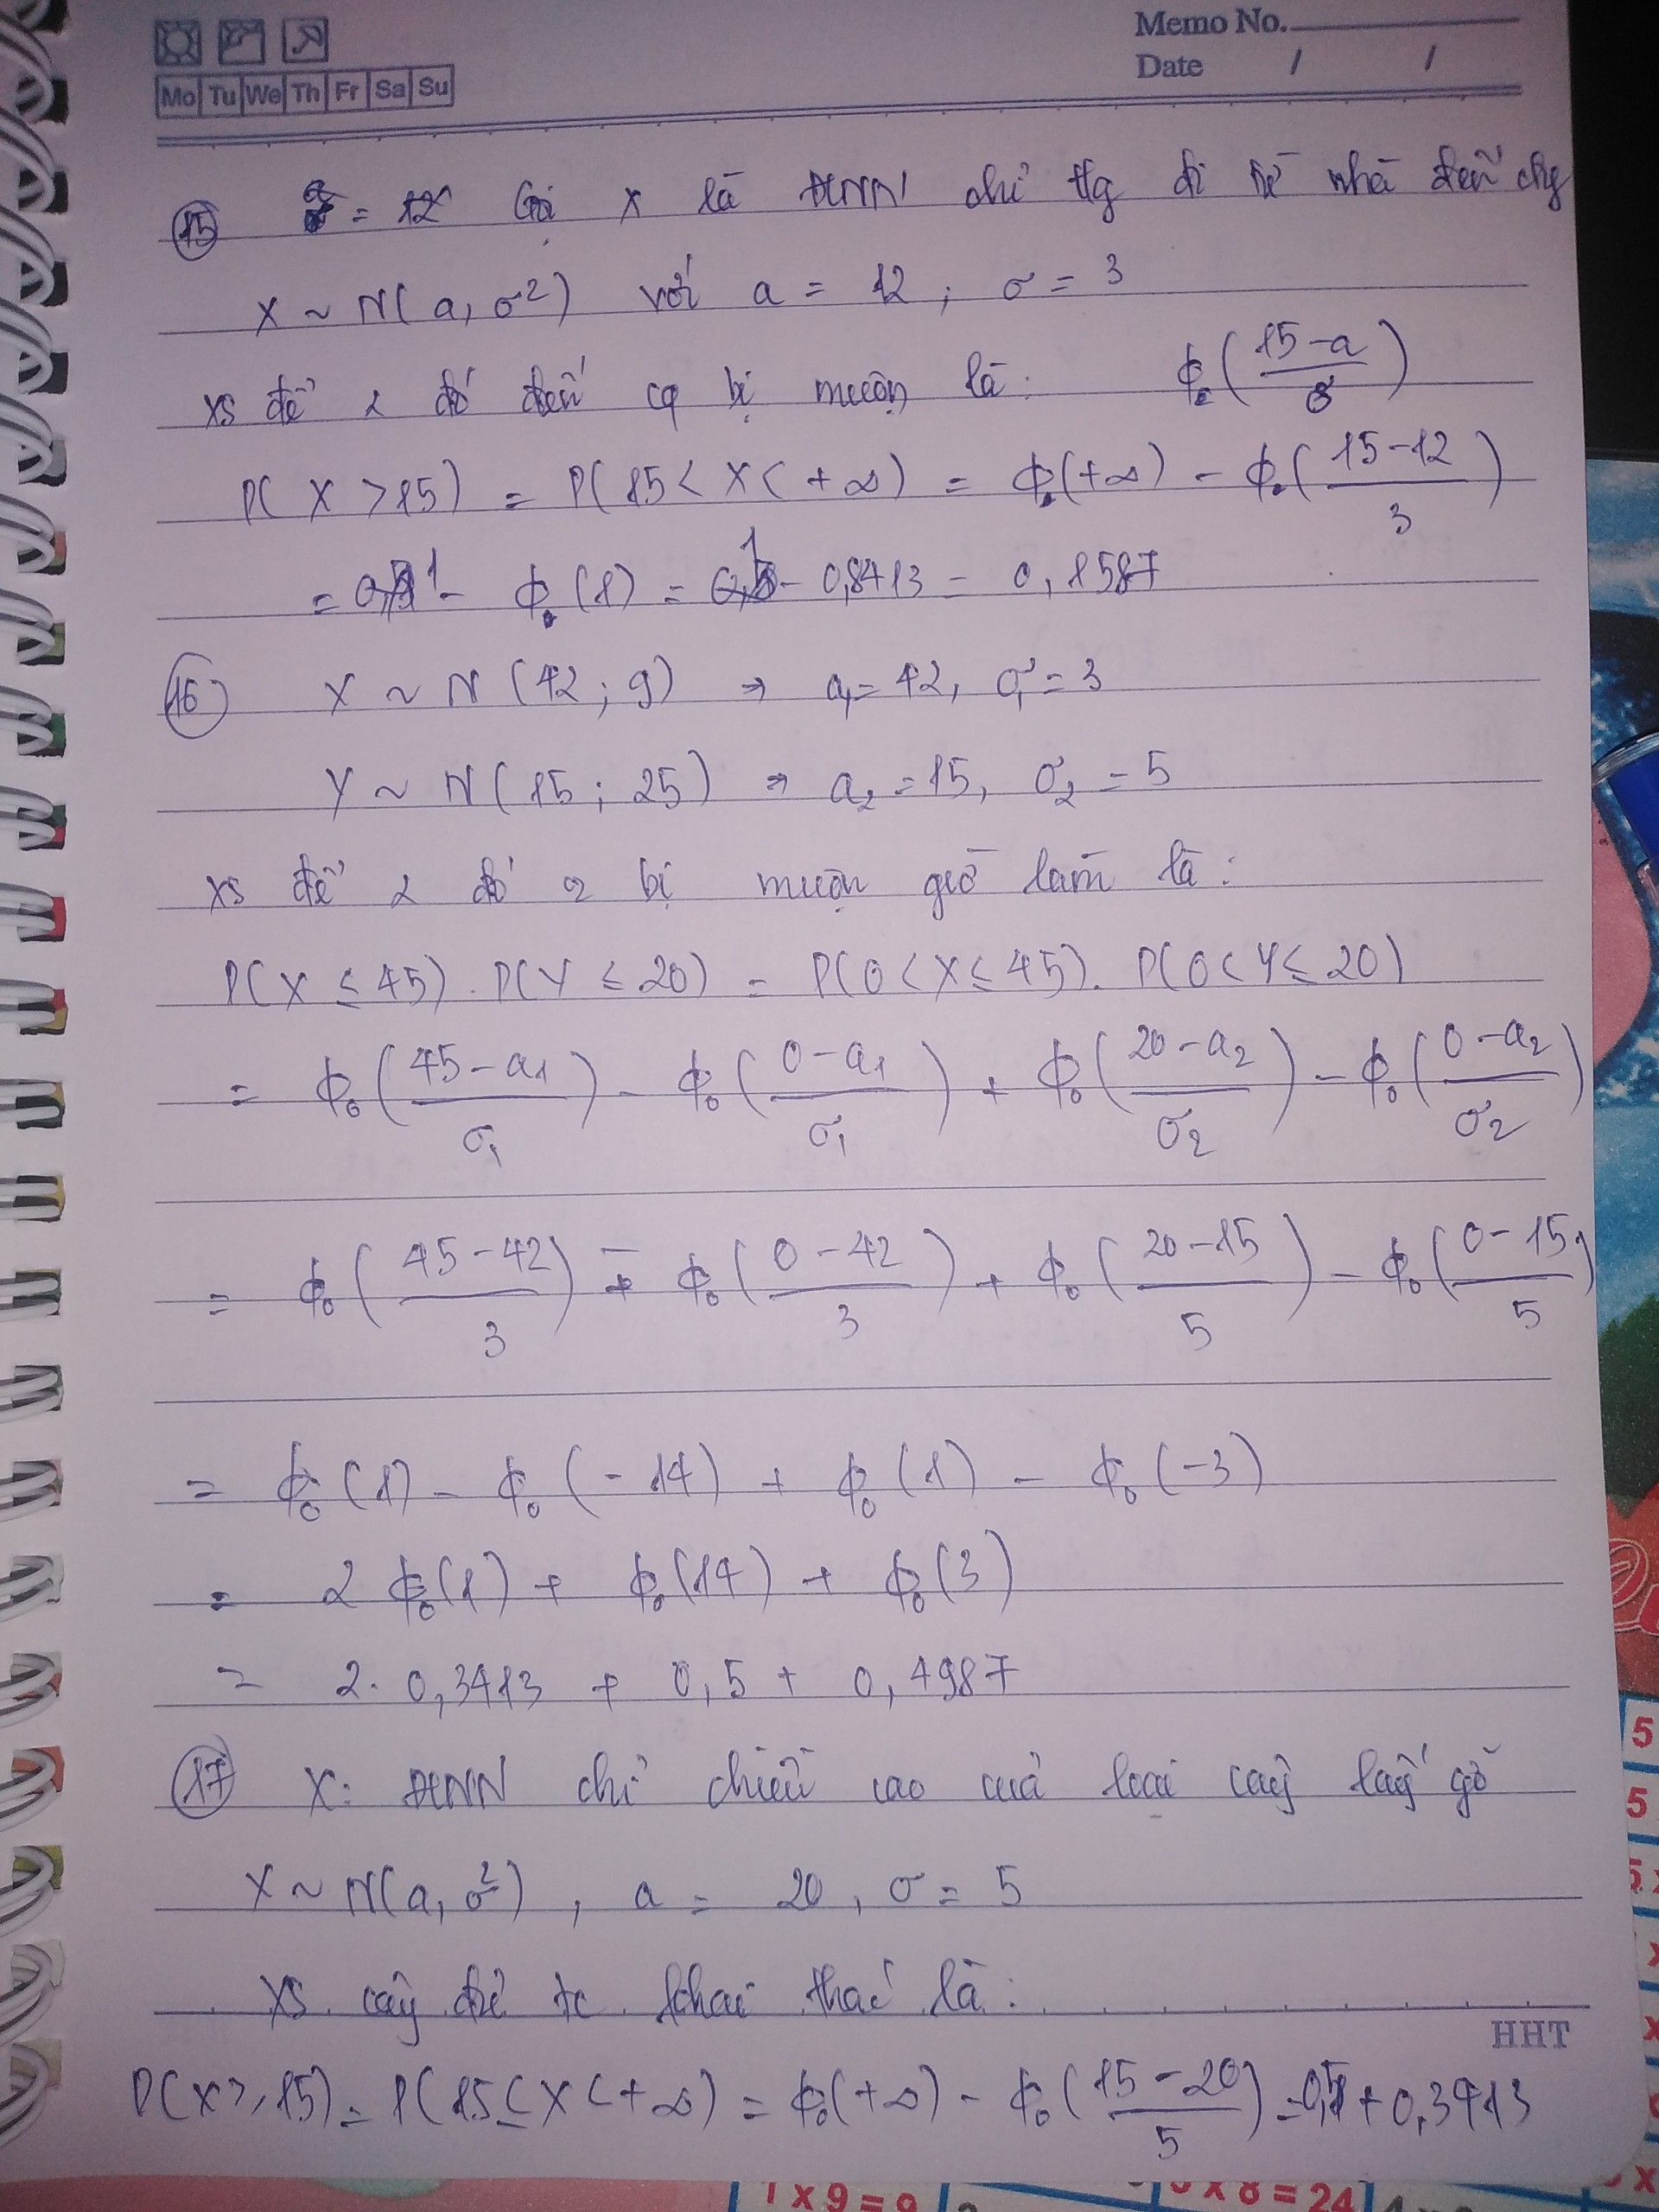 Memo No.
Date / /
Mo Tu We Th Fr Sa Su
15 a = 12 Gọi X là ĐLNN chỉ tg đi từ nhà đến
X ~ N(a, σ²) với a = 12 ; σ = 3
xs để đó đến cq bị muộn là: ϕ₀((15-a)/σ)
P(X > 15) = P(15 < X < +∞) = ϕ(+∞) - ϕ((15-12)/3)
= 1 - ϕ(1) = 1 - 0,8413 = 0,1587
16 X ~ N(42 ; 9) ⇒ a₁ = 42, σ₁ = 3
Y ~ N(15 ; 25) ⇒ a₂ = 15, σ₂ = 5
xs để đó bị muộn giờ làm là :
P(X ≤ 45) . P(Y ≤ 20) = P(0 < X ≤ 45). P(0 < Y ≤ 20)
= ϕ₀((45-a₁)/σ₁) - ϕ₀((0-a₁)/σ₁) + ϕ₀((20-a₂)/σ₂) - ϕ₀((0-a₂)/σ₂)
= ϕ₀((45-42)/3) - ϕ₀((0-42)/3) + ϕ₀((20-15)/5) - ϕ₀((0-15)/5)
= ϕ₀(1) - ϕ₀(-14) + ϕ₀(1) - ϕ₀(-3)
= 2 ϕ₀(1) + ϕ₀(14) + ϕ₀(3)
= 2. 0,3413 + 0,5 + 0,4987
17 X: ĐLNN chỉ chiều cao của loại cây lấy gỗ
X ~ N(a, σ²) , a = 20 , σ = 5
XS cây đc khai thác là :
HHT
P(X ≥ 15) = P(15 ≤ X < +∞) = ϕ₀(+∞) - ϕ₀((15-20)/5) = 0,5 + 0,3413
1 x 9 = 9
x 8 = 24